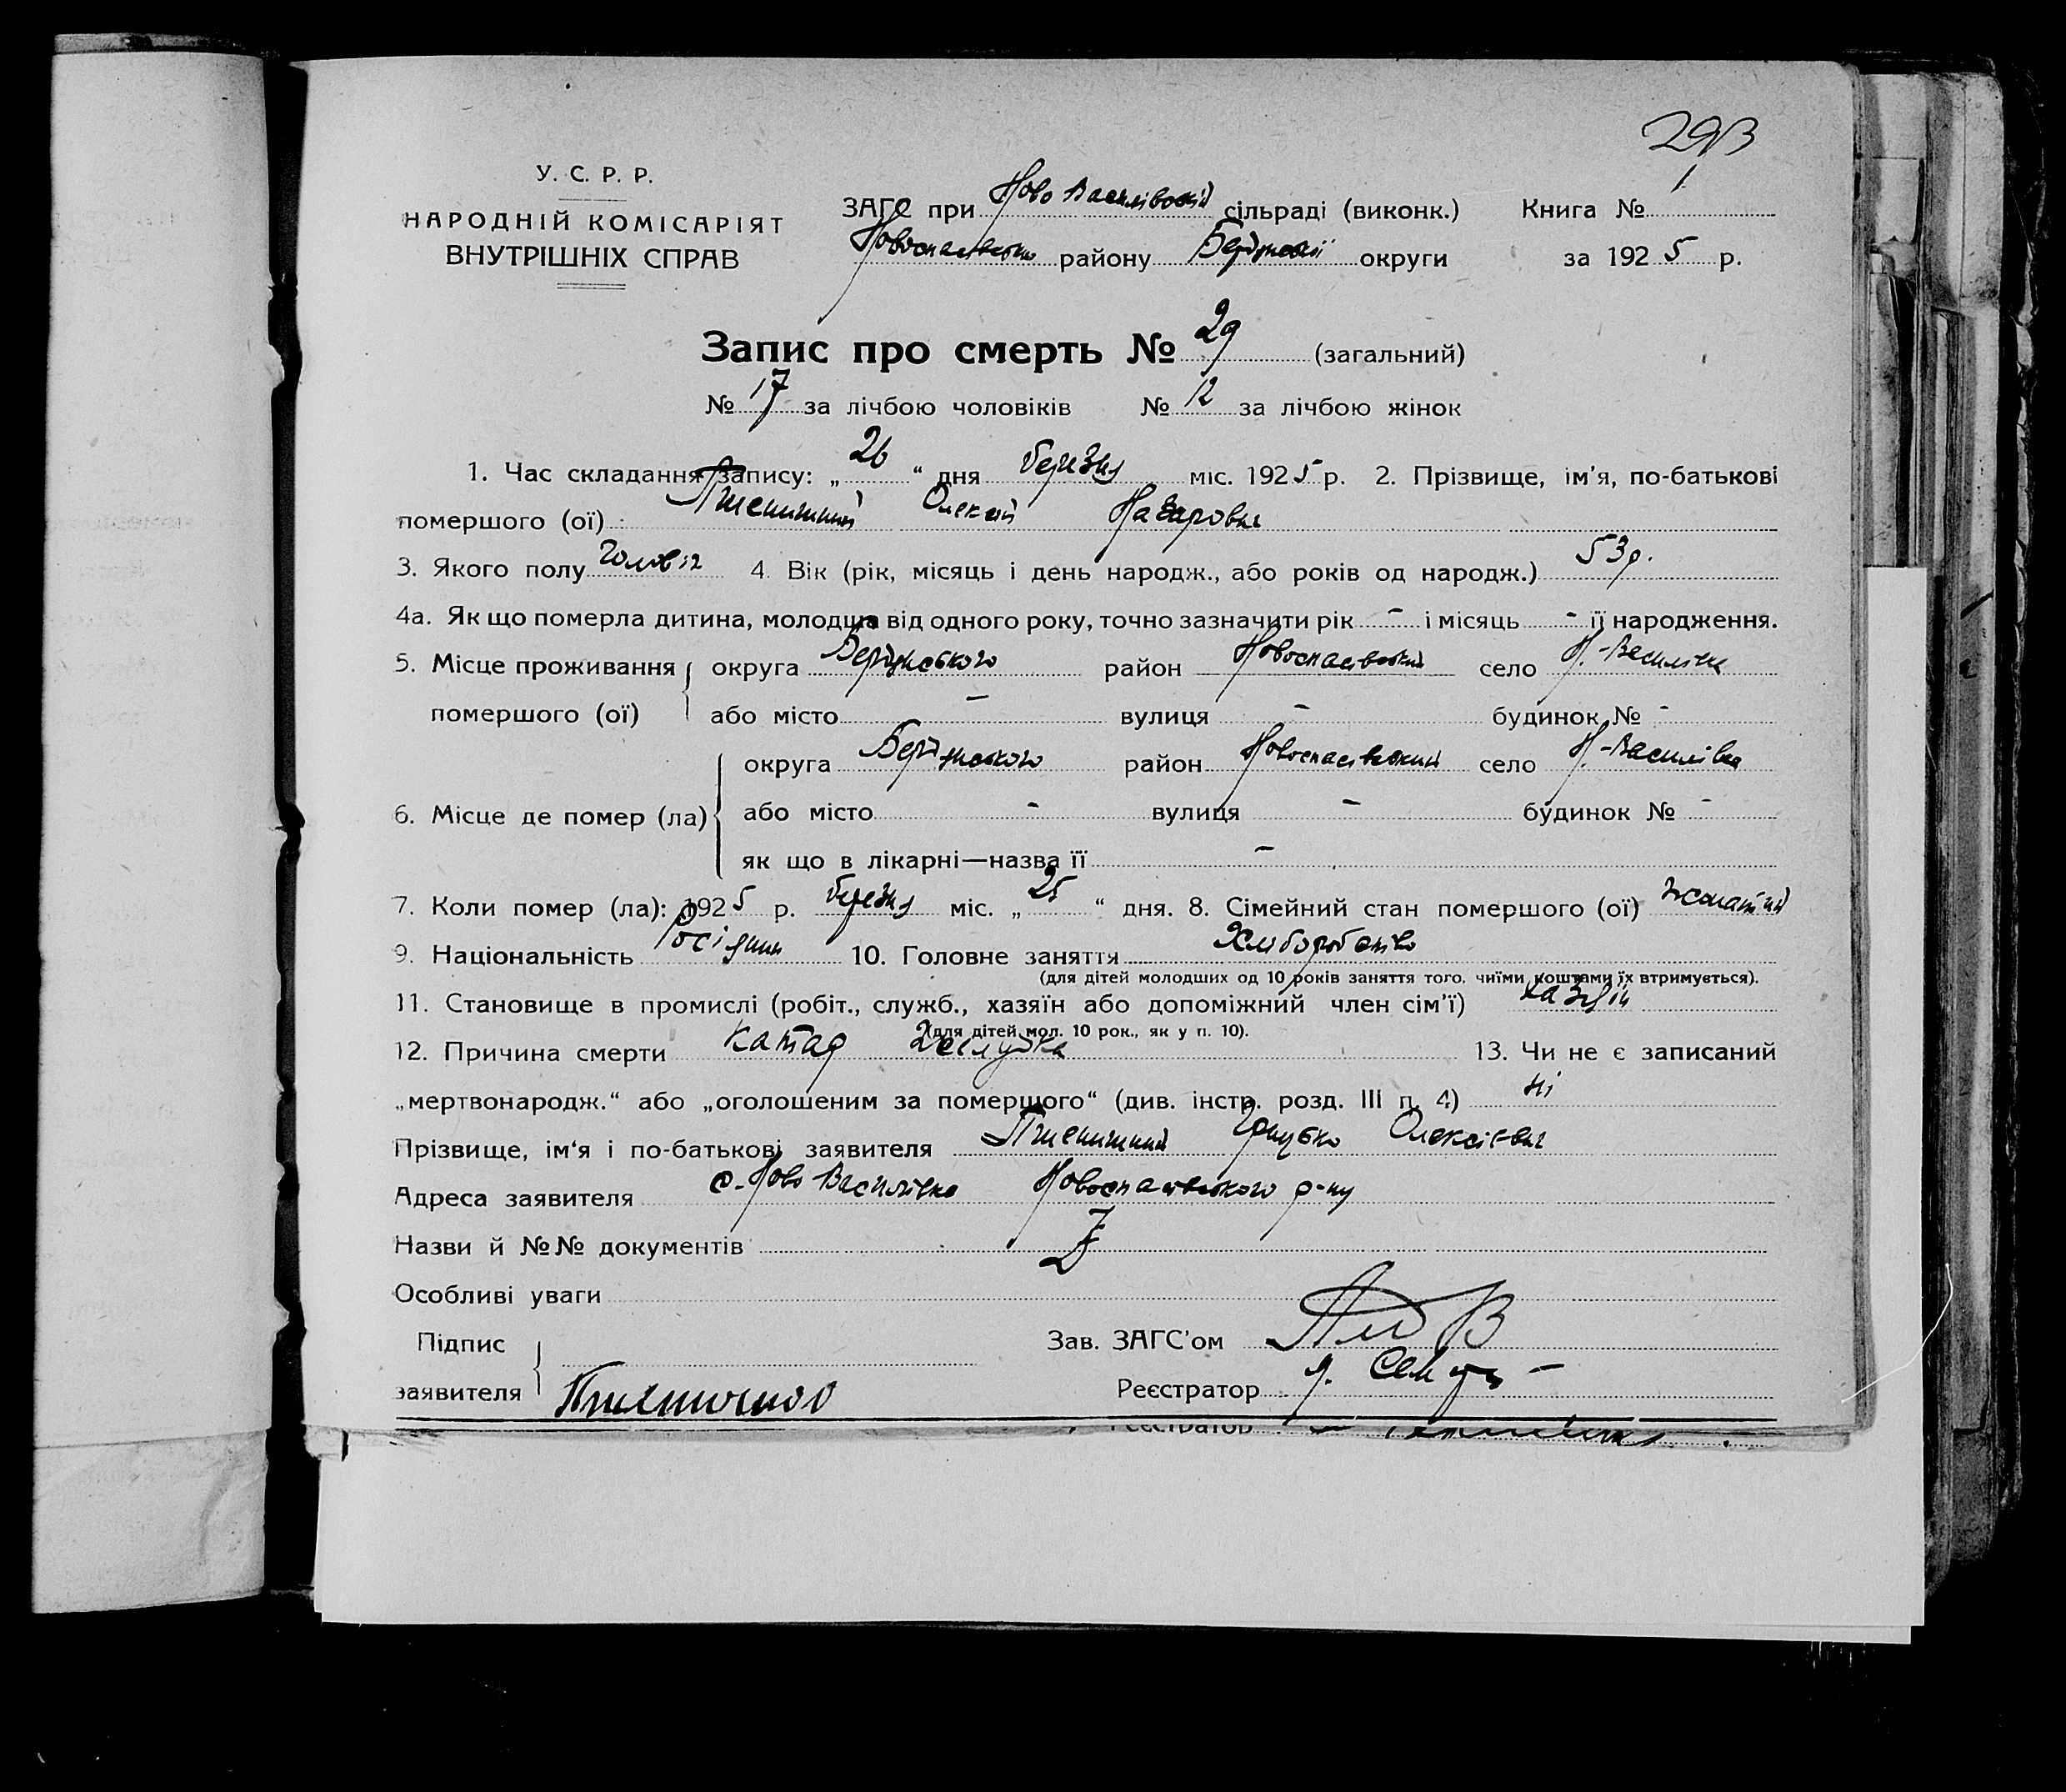 293
У. С. Р. Р.
НАРОДНІЙ КОМІСАРІЯТ
ВНУТРІШНІХ СПРАВ
ЗАГС при Ново Василівській сільраді (виконк.) Книга № 1
Новоспасівського району Бердянської округи за 1925 р.
Запис про смерть № 29 (загальний)
№ 17 за лічбою чоловіків № 12 за лічбою жінок
1. Час складання запису: „26“ дня березня міс. 1925 р. 2. Прізвище, ім'я, по-батькові
помершого (ої) Пшенишний Олексій Назарович
3. Якого полу чоловік 4. Вік (рік, місяць і день народж., або років од народж.) 53 р.
4а. Як що померла дитина, молодша від одного року, точно зазначити рік - і місяць - її народження.
5. Місце проживання округа Бердянського район Новоспасівський село Н.-Василівка
помершого (ої) або місто - вулиця - будинок № -
округа Бердянського район Новоспасівський село Н-Василівка
6. Місце де помер (ла) або місто - вулиця - будинок № -
як що в лікарні—назва її -
7. Коли помер (ла): 1925 р. березня міс. „25“ дня. 8. Сімейний стан помершого (ої) жонатий
9. Національність Росіянин 10. Головне заняття Хліборобство
(для дітей молодших од 10 років заняття того, чиїми коштами їх втримується).
11. Становище в промислі (робіт., служб., хазяїн або допоміжний член сім'ї) хазяїн
(для дітей мол. 10 рок., як у п. 10).
12. Причина смерти Катар Желудка 13. Чи не є записаний
„мертвонародж.“ або „оголошеним за померщого“ (див. інстр. розд. III п. 4) ні
Прізвище, ім'я і по-батькові заявителя Пшенишний Олексієвич
Адреса заявителя с. Ново Василівка Новоспасівського р-ну
Назви й №№ документів
Особливі уваги
Підпис Зав. ЗАГС'ом
заявителя Реєстратор
Реєстратор